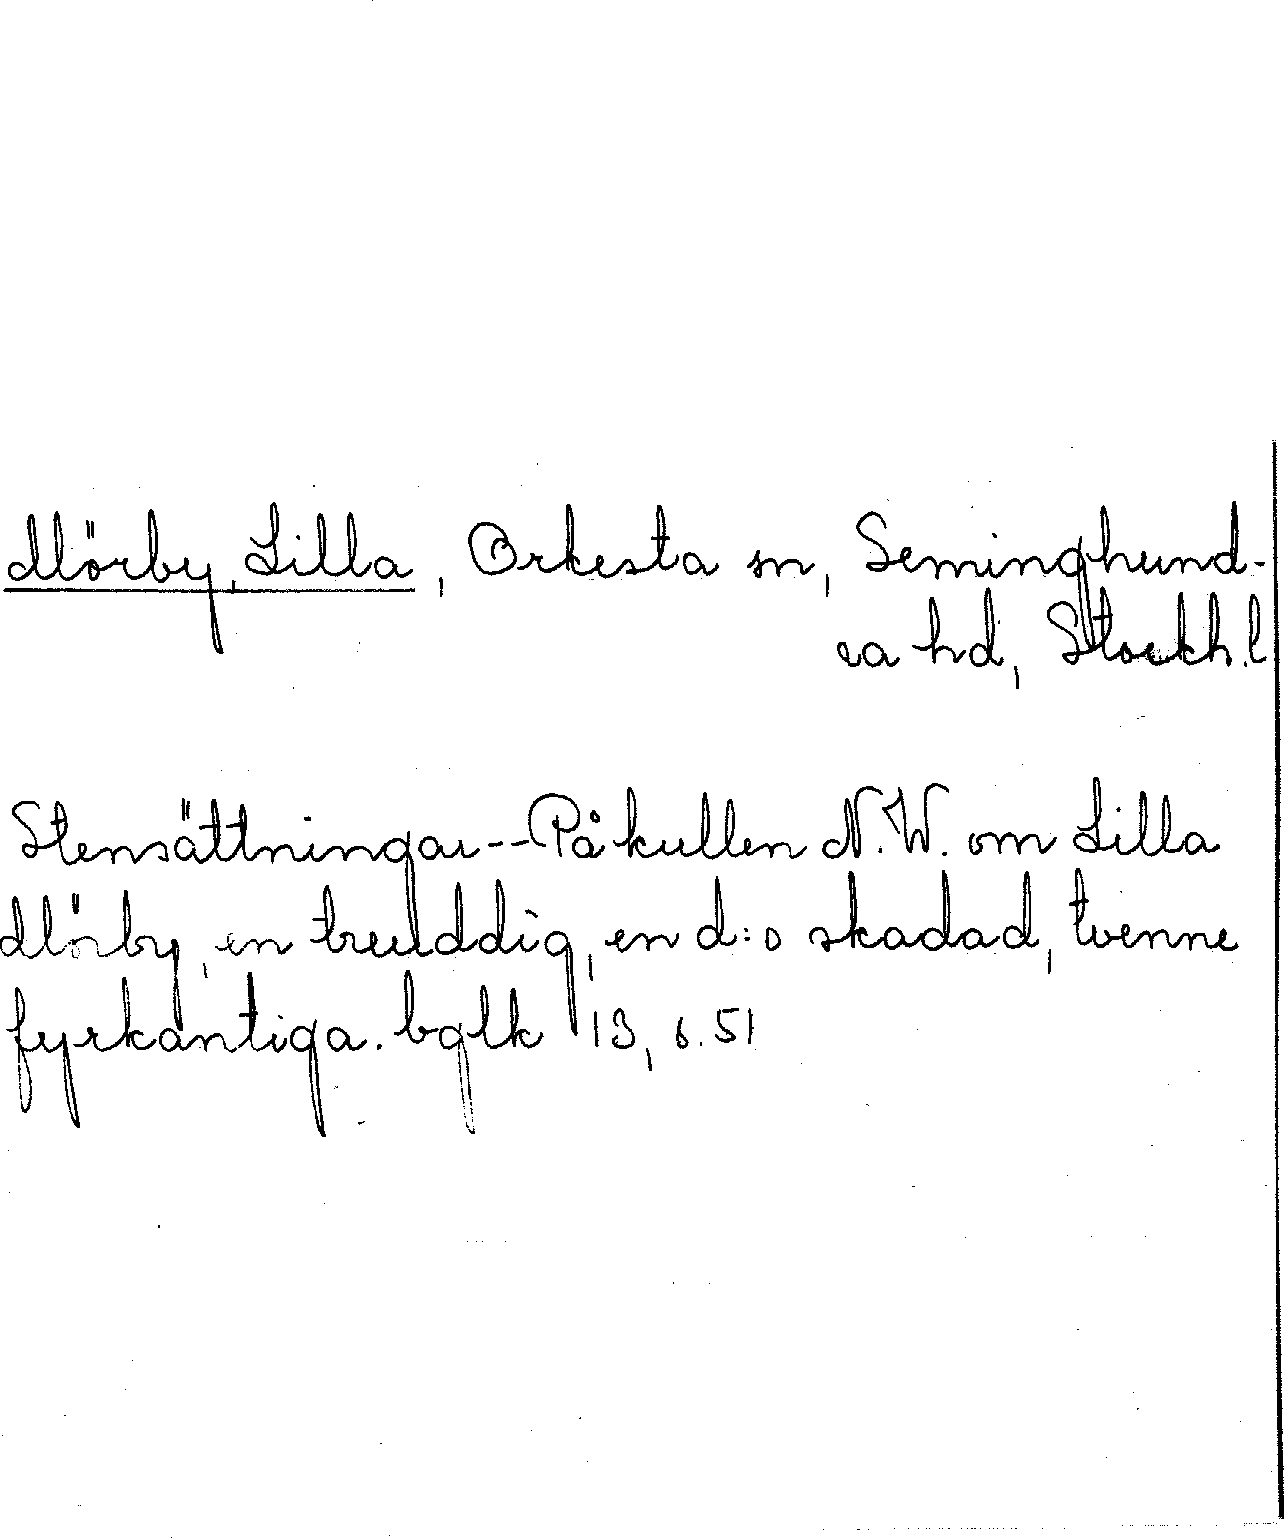 Mörby, Lilla, Orkesta sn, Seminghund-
ra hd, Stockh.l
Stensättningar--På kullen N.W. om Lilla
Mörby, en treuddig, en d:o skadad, tvenne
fyrkantiga. bglk 13, 6.51